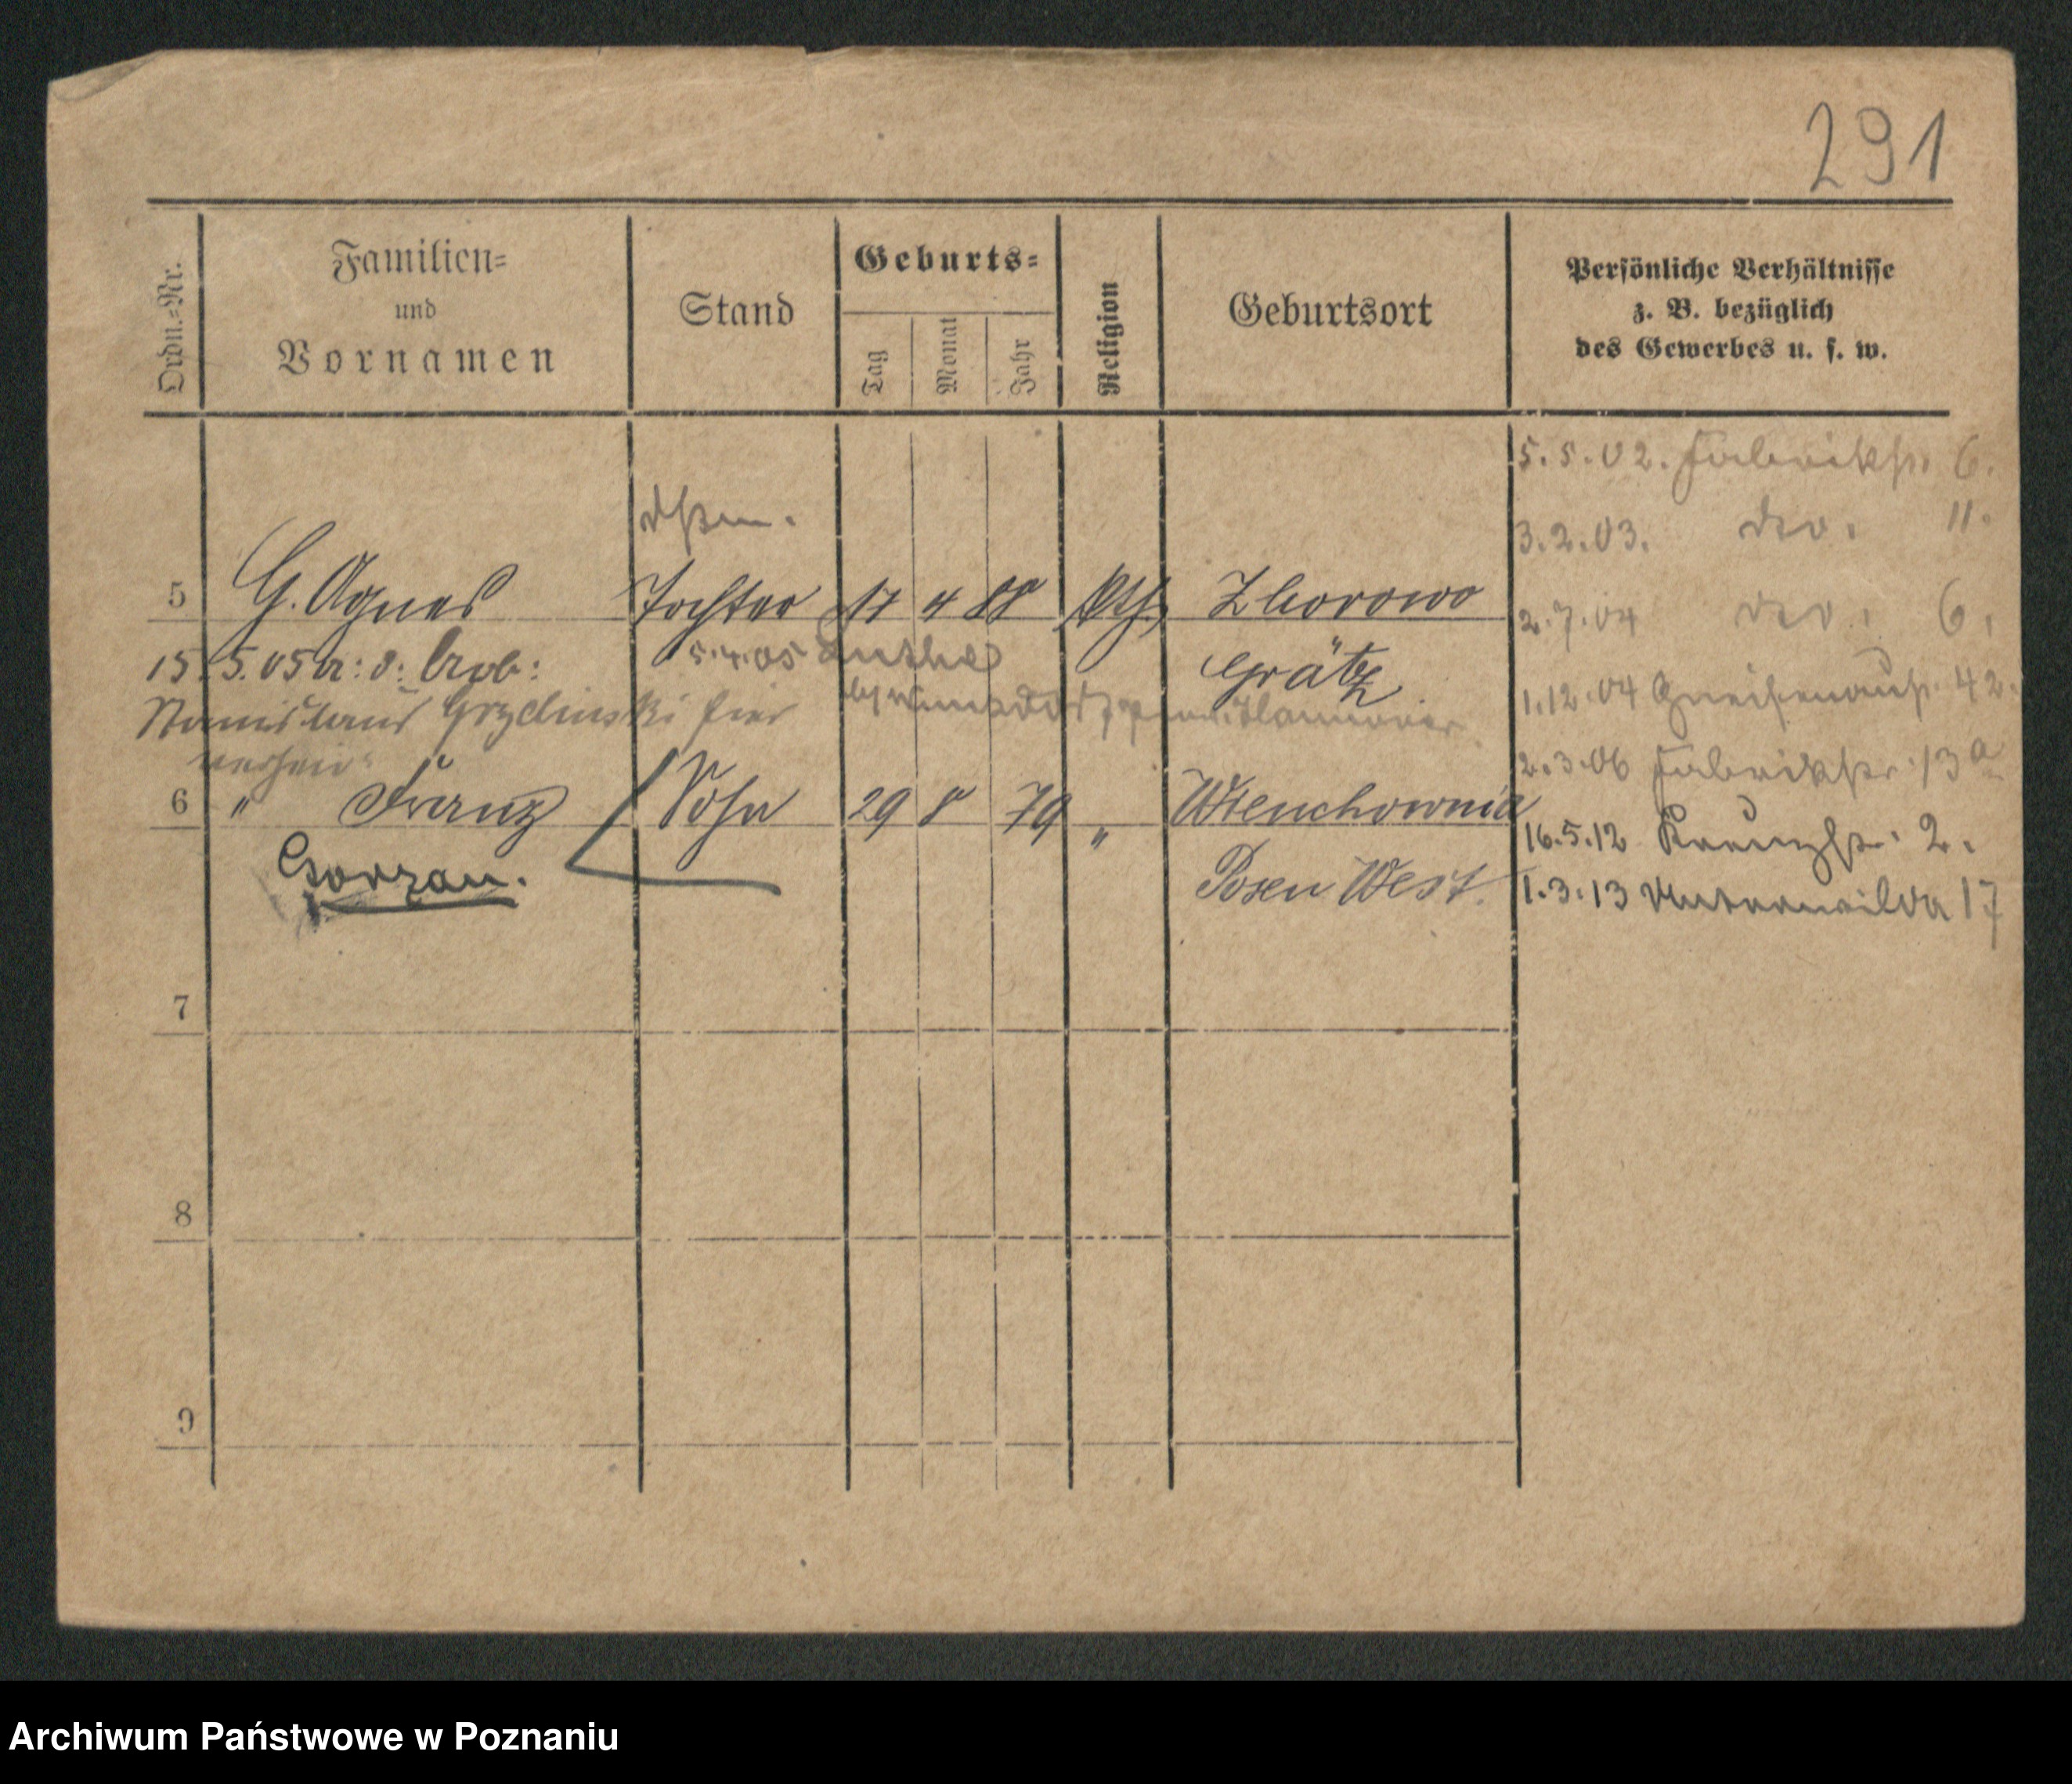 291
Ordn.=Nr.
Familien=
und
Vornamen
Stand
Geburts=
Tag
Monat
Jahr
Religion
Geburtsort
Persönliche Verhältnisse
z. B. bezüglich
des Gewerbes u. s. w.
5.5.02. Fabrikstr. 6.
3.2.03. dto. 11.
5 G. Agnes Tochter 17 4 88 kth. Zborowo
2.7.04 dto. 6.
15.5.05 a: d: Arb: 5.4.05 Grätz
Stanislaus hier
1.12.04 Gneisenaustr. 42.
Hannover
2.3.06 Fabrikstr. 13a
6 " Franz Sohn 29 8 79 "
16.5.12 Kreuzstr. 2.
Gorzan. Posen West.
1.3.13 Unterwilda 17
7
8
9
Archiwum Państwowe w Poznaniu